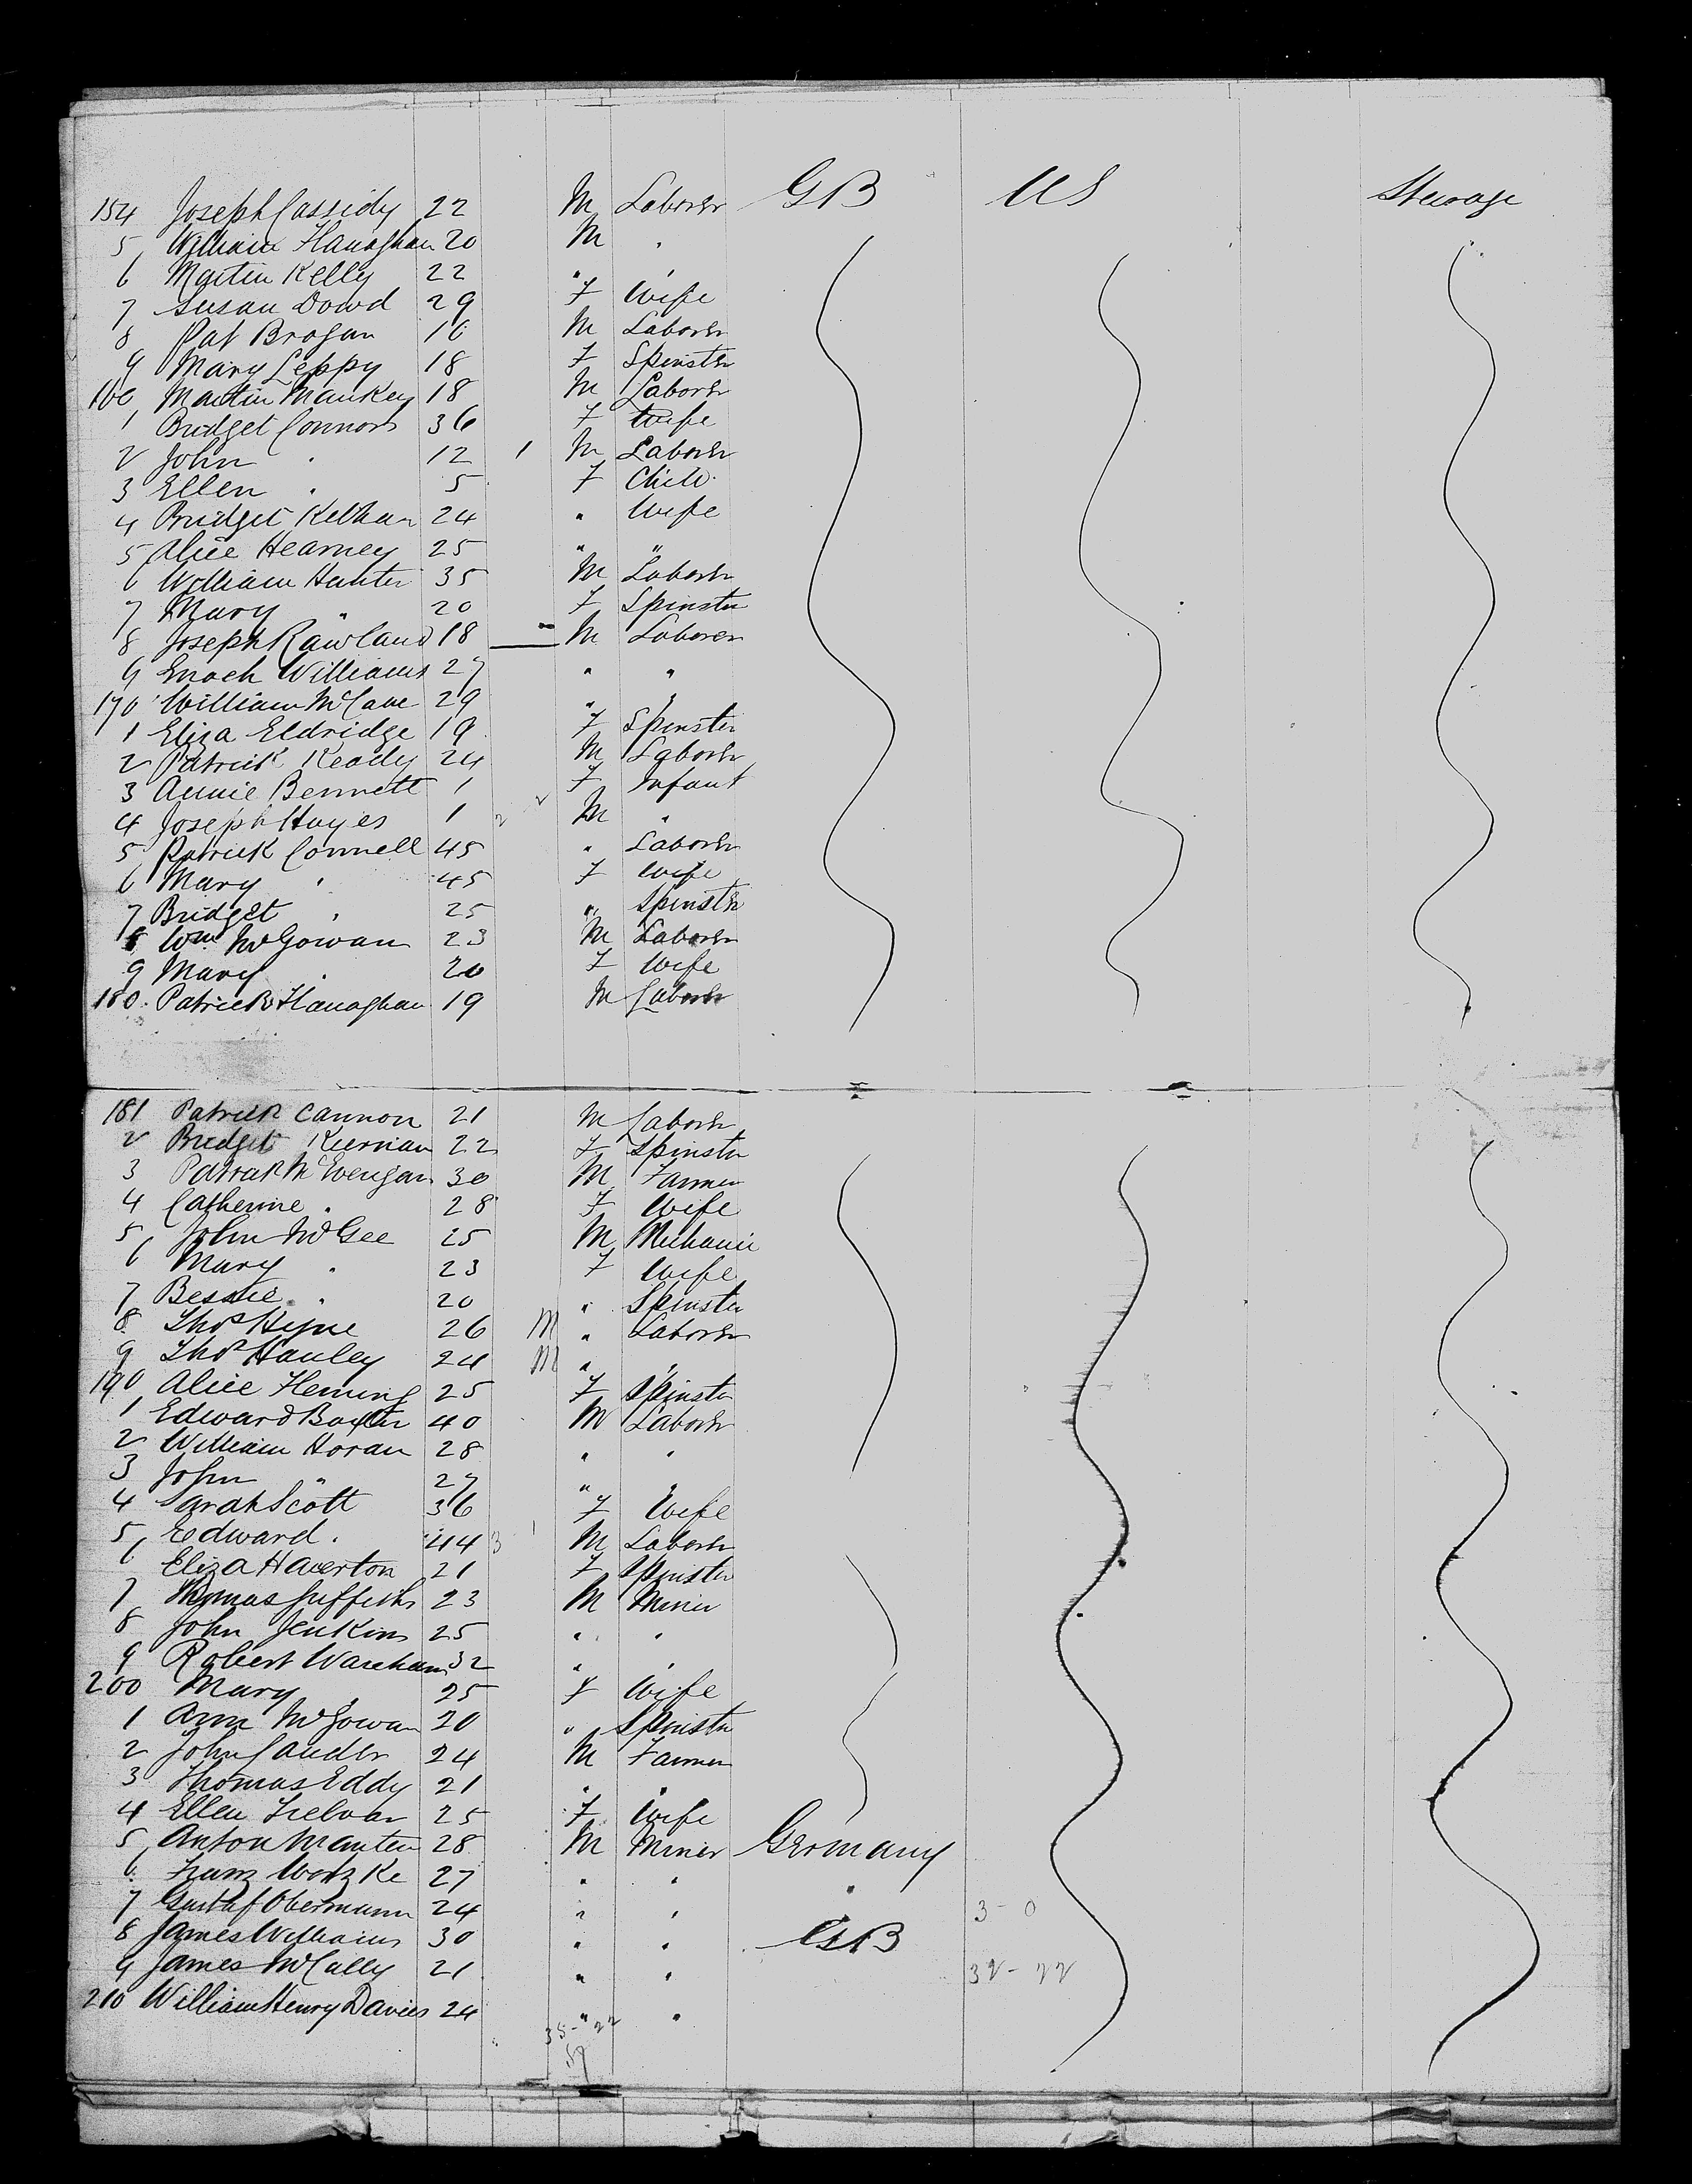 154 Joseph Cassidy 22 M Laborer GB US Steerage
5 William Flanaghan 20 M "
6 Martin Kelly 22 " "
7 Susan Dowd 29 F Wife
8 Pat Brogan 16 M Laborer
9 Mary Leppy 18 F Spinster
160 Martin Mankey 18 M Laborer
1 Bridget Connors 36 F Wife
2 John " 12 1 M Laborer
3 Ellen " 5 F Child
4 Bridget 24 " Wife
5 Alice Hearney 25 " "
6 William Hunter 35 M Laborer
7 Mary " 20 F Spinster
8 Joseph Rawland 18 M Laborer
9 Enoch Williams 27 " "
170 William McCave 29 " "
1 Eliza Eldridge 19 F Spinster
2 Patrick Keady 24 M Laborer
3 Annie Bennett 1 F Infant
4 Joseph Hayes 1 M "
5 Patrick Connell 45 " Laborer
6 Mary " 45 F Wife
7 Bridget " 25 " Spinster
8 Wm McGowan 23 M Laborer
9 Mary " 20 F Wife
180 Patrick Flanaghan 19 M Laborer
181 Patrick Cannon 21 M Laborer
2 Bridget Kiernan 22 F Spinster
3 30 M Farmer
4 Catherine " 28 F Wife
5 John McGee 25 M Mechanic
6 Mary " 23 F Wife
7 Bessie " 20 " Spinster
8 Thos Hyne 26 M " Laborer
9 Thos Hanley 24 M " "
190 Alice Fleming 25 F Spinster
1 Edward Baxter 40 M Laborer
2 William Horan 28 " "
3 John " 27 " "
4 Sarah Scott 36 F Wife
5 Edward " 44 M Laborer
6 Eliza Haverton 21 F Spinster
7 Thomas Griffiths 23 M Miner
8 John Jenkins 25 " "
9 Robert Wareham 32 " "
200 Mary " 25 F Wife
1 Ann McGowan 20 " Spinster
2 John 24 M Farmer
3 Thomas Eddy 21 " "
4 Ellen 25 F Wife
5 Anton Manten 28 M Miner Germany
6 27 " " "
7 Gustaf Obermann 24 " " 3-0
8 James Williams 30 " " GB
9 James McCally 21 " " 32-22
210 William Henry Davies 24 " "
35-22
57